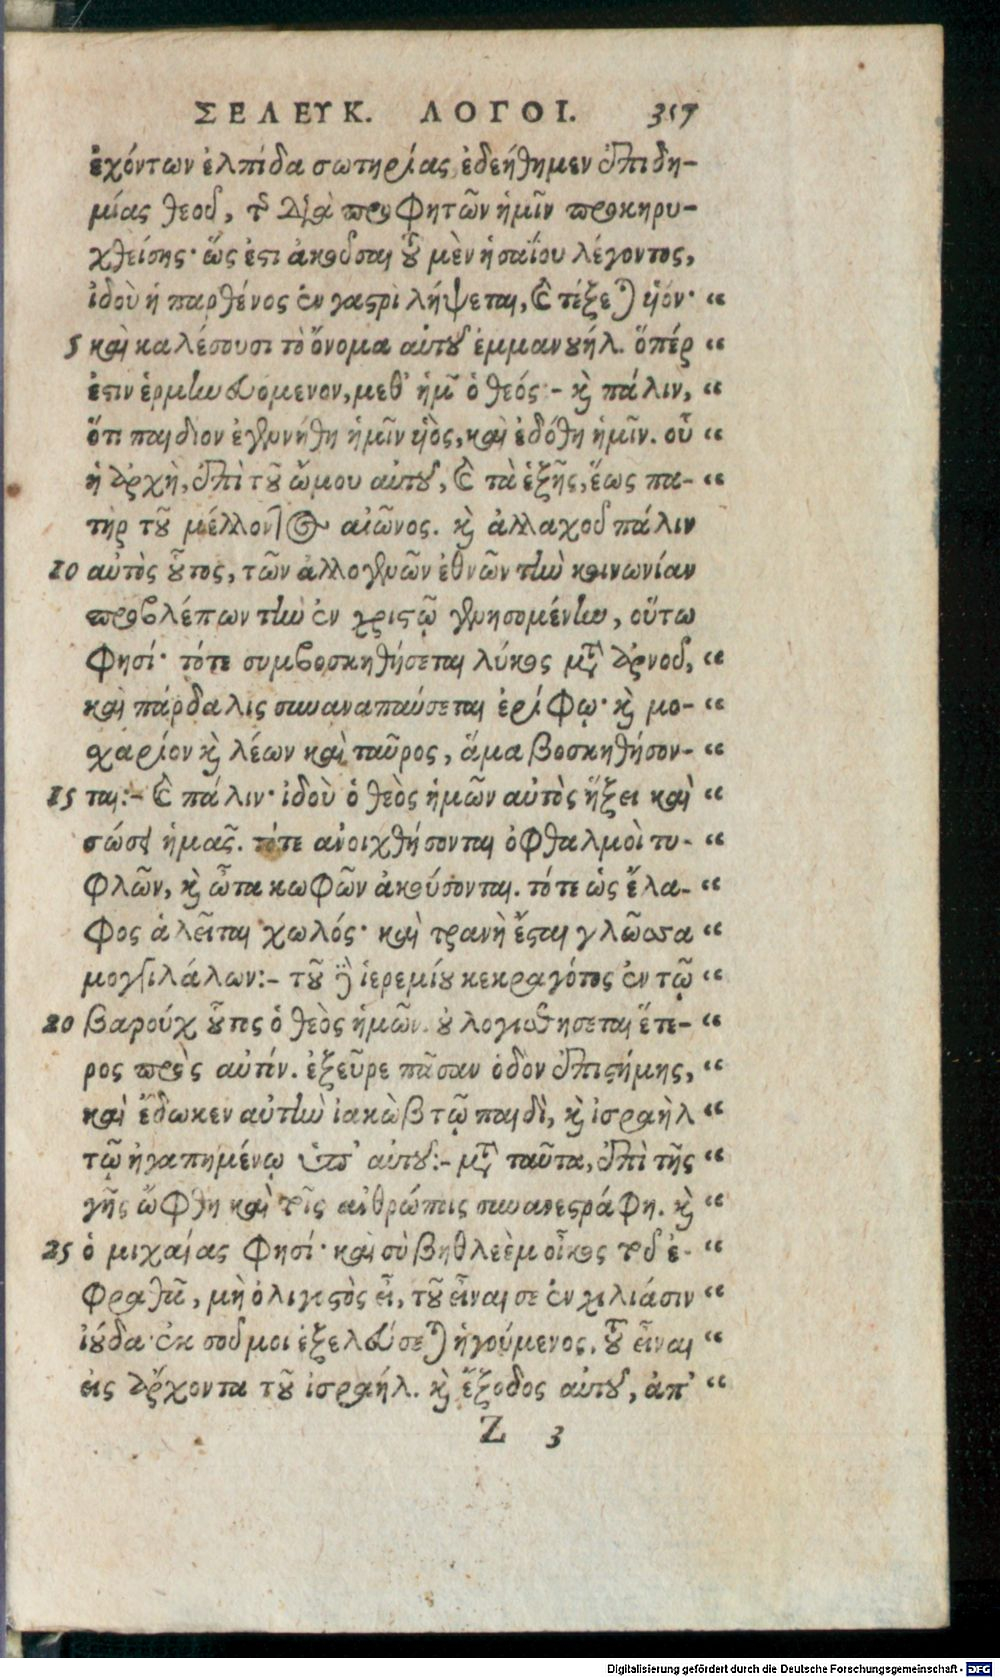 ΣΕΛΕΥΚ. ΛΟΓΟΙ. 357
ἐχόντων ἐλπίδα σωτηρίας, ἐδεήθημεν ἐπιδη-
μίας θεοῦ, τῆς διὰ προφητῶν ἡμῖν προκηρυ-
χθείσης· ὥς ἐστι ἀκοῦσαι τοῦ μὲν ἡσαΐου λέγοντος,
ἰδοὺ ἡ παρθένος ἐν γαστρὶ λήψεται, καὶ τέξεται υἱόν· “
5 καὶ καλέσουσι τὸ ὄνομα αὐτοῦ ἐμμανουήλ. ὅπέρ “
ἐστιν ἑρμηνευόμενον, μεθ’ ἡμῶν ὁ θεός:- καὶ πάλιν, “
ὅτι παιδίον ἐγεννήθη ἡμῖν υἱὸς, καὶ ἐδόθη ἡμῖν. οὗ “
ἡ ἀρχὴ, ἐπὶ τοῦ ὤμου αὐτοῦ, καὶ τὰ ἑξῆς, ἕως πα- “
τὴρ τοῦ μέλλοντος αἰῶνος. καὶ ἀλλαχοῦ πάλιν
10 αὐτὸς οὗτος, τῶν ἀλλογενῶν ἐθνῶν τὴν κοινωνίαν
προβλέπων τὴν ἐν χριστῷ γενησομένην, οὕτω
φησί· τότε συμβοσκηθήσεται λύκος μετὰ ἀρνοῦ, “
καὶ πάρδαλις συναναπαύσεται ἐρίφῳ· καὶ μο- “
χάριον καὶ λέων καὶ ταῦρος, ἅμα βοσκηθήσον- “
15 ται:- καὶ πάλιν· ἰδοὺ ὁ θεὸς ἡμῶν αὐτὸς ἥξει καὶ “
σώσει ἡμᾶς. τότε ἀνοιχθήσονται ὀφθαλμοὶ τυ- “
φλῶν, καὶ ὦτα κωφῶν ἀκούσονται. τότε ὡς ἔλα- “
φος ἁλεῖται χωλός· καὶ τρανὴ ἔσται γλῶσσα “
μογγιλάλων:- τοῦ δὲ ἱερεμίου κεκραγότος ἐν τῷ “
20 βαρούχ οὗτος ὁ θεὸς ἡμῶν. οὐ λογισθήσεται ἕτε- “
ρος πρὸς αὐτόν. ἐξεῦρε πᾶσαν ὁδὸν ἐπιστήμης, “
καὶ ἔδωκεν αὐτὴν ἰακὼβ τῷ παιδὶ, καὶ ἰσραὴλ “
τῷ ἠγαπημένῳ ὑπ’ αὐτοῦ:- μετὰ ταῦτα, ἐπὶ τῆς “
γῆς ὤφθη καὶ τοῖς ἀνθρώποις συνανεστράφη. καὶ “
25 ὁ μιχαίας φησί· καὶ σὺ βηθλεὲμ οἶκος τοῦ ἐ- “
φραθᾶ, μὴ ὀλιγοστὸς εἶ, τοῦ εἶναι σε ἐν χιλιάσιν “
ἰούδα· ἐκ σοῦ μοι ἐξελεύσεται ἡγούμενος. τοῦ εἶναι “
εἰς ἄρχοντα τοῦ ἰσραήλ. καὶ ἔξοδος αὐτοῦ, ἀπ’ “
Z 3
Digitalisierung gefördert durch die Deutsche Forschungsgemeinschaft - DFG